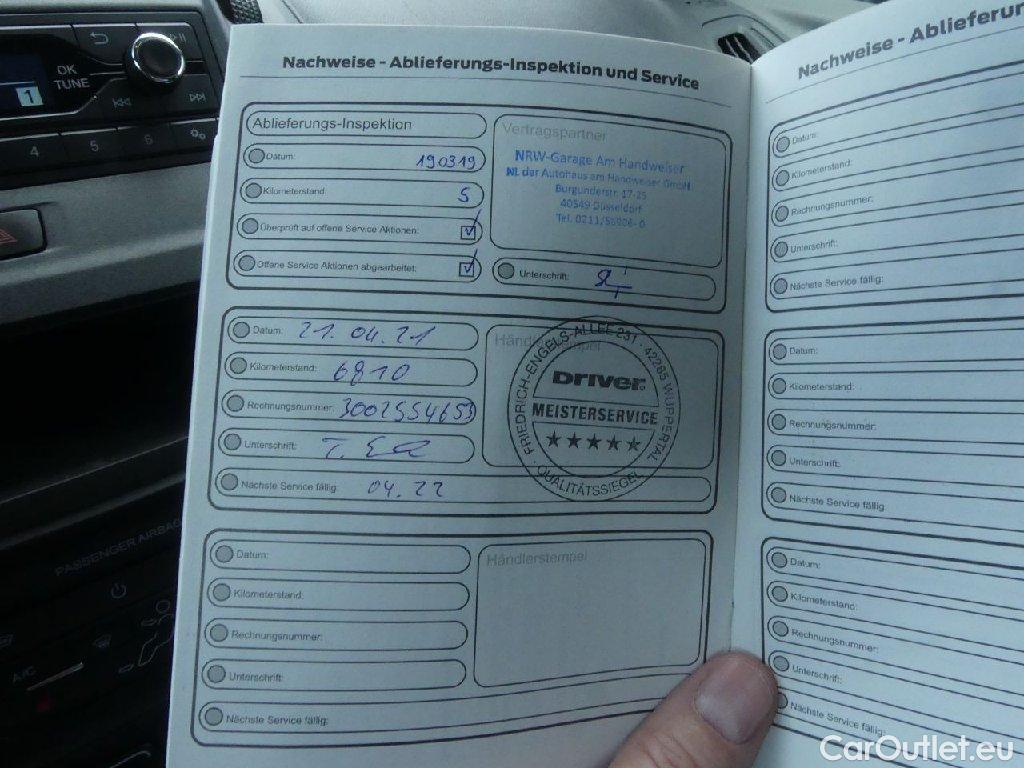 OK
TUNE
1
4
5
6
PASSENGER AIRBAG
A/C
Nachweise - Ablieferungs-Inspektion und Service
Ablieferungs-Inspektion
Datum: 190319
Kilometerstand: 5
Überprüft auf offene Service Aktionen:
Offene Service Aktionen abgearbeitet:
Vertragspartner
NRW-Garage Am Handweiser
NL der Autohaus am Handweiser GmbH
Burgunderstr. 17-25
40549 Düsseldorf
Tel. 0211/
Unterschrift:
Datum: 21.04.21
Kilometerstand: 6810
Rechnungsnummer: 3002554653
Unterschrift:
Nächste Service fällig: 04.22
Händlerstempel
FRIEDRICH-ENGELS-ALLEE 231 · 42285 WUPPERTAL
DRIVER
MEISTERSERVICE
★★★★★
· QUALITÄTSSIEGEL ·
Datum:
Kilometerstand:
Rechnungsnummer:
Unterschrift:
Nächste Service fällig:
Händlerstempel
Nachweise - Ablieferun
Datum:
Kilometerstand:
Rechnungsnummer:
Unterschrift:
Nächste Service fällig:
Datum:
Kilometerstand:
Rechnungsnummer:
Unterschrift:
Nächste Service fällig
Datum:
Kilometerstand:
Rechnungsnummer:
Unterschrift:
Nächste Service fällig:
CarOutlet.eu